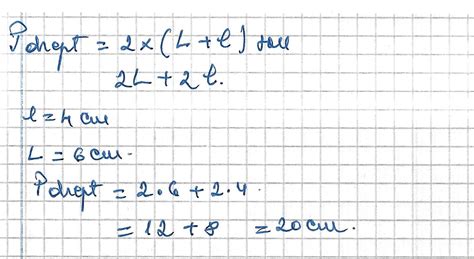 Pdrept = 2 x (L + l) sau
2L + 2l.
l = 4 cm
L = 6 cm.
Pdrept = 2.6 + 2.4.
= 12 + 8 = 20 cm.